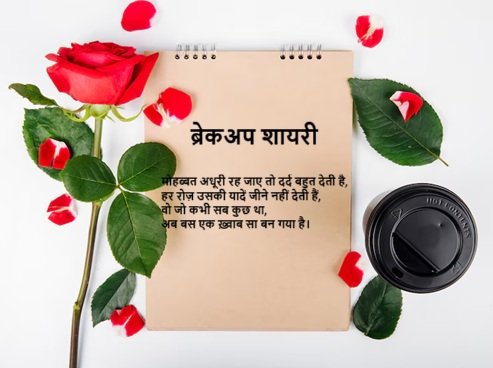 ब्रेकअप शायरी
मोहब्बत अधूरी रह जाए तो दर्द बहुत देती है,
हर रोज़ उसकी यादें जीने नहीं देती हैं,
वो जो कभी सब कुछ था,
अब बस एक ख़्वाब सा बन गया है।
HOT CONTENTS